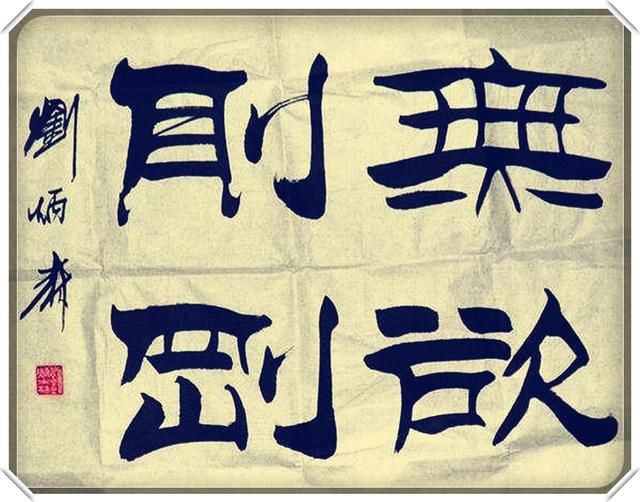 無欲
則剛
劉炳森